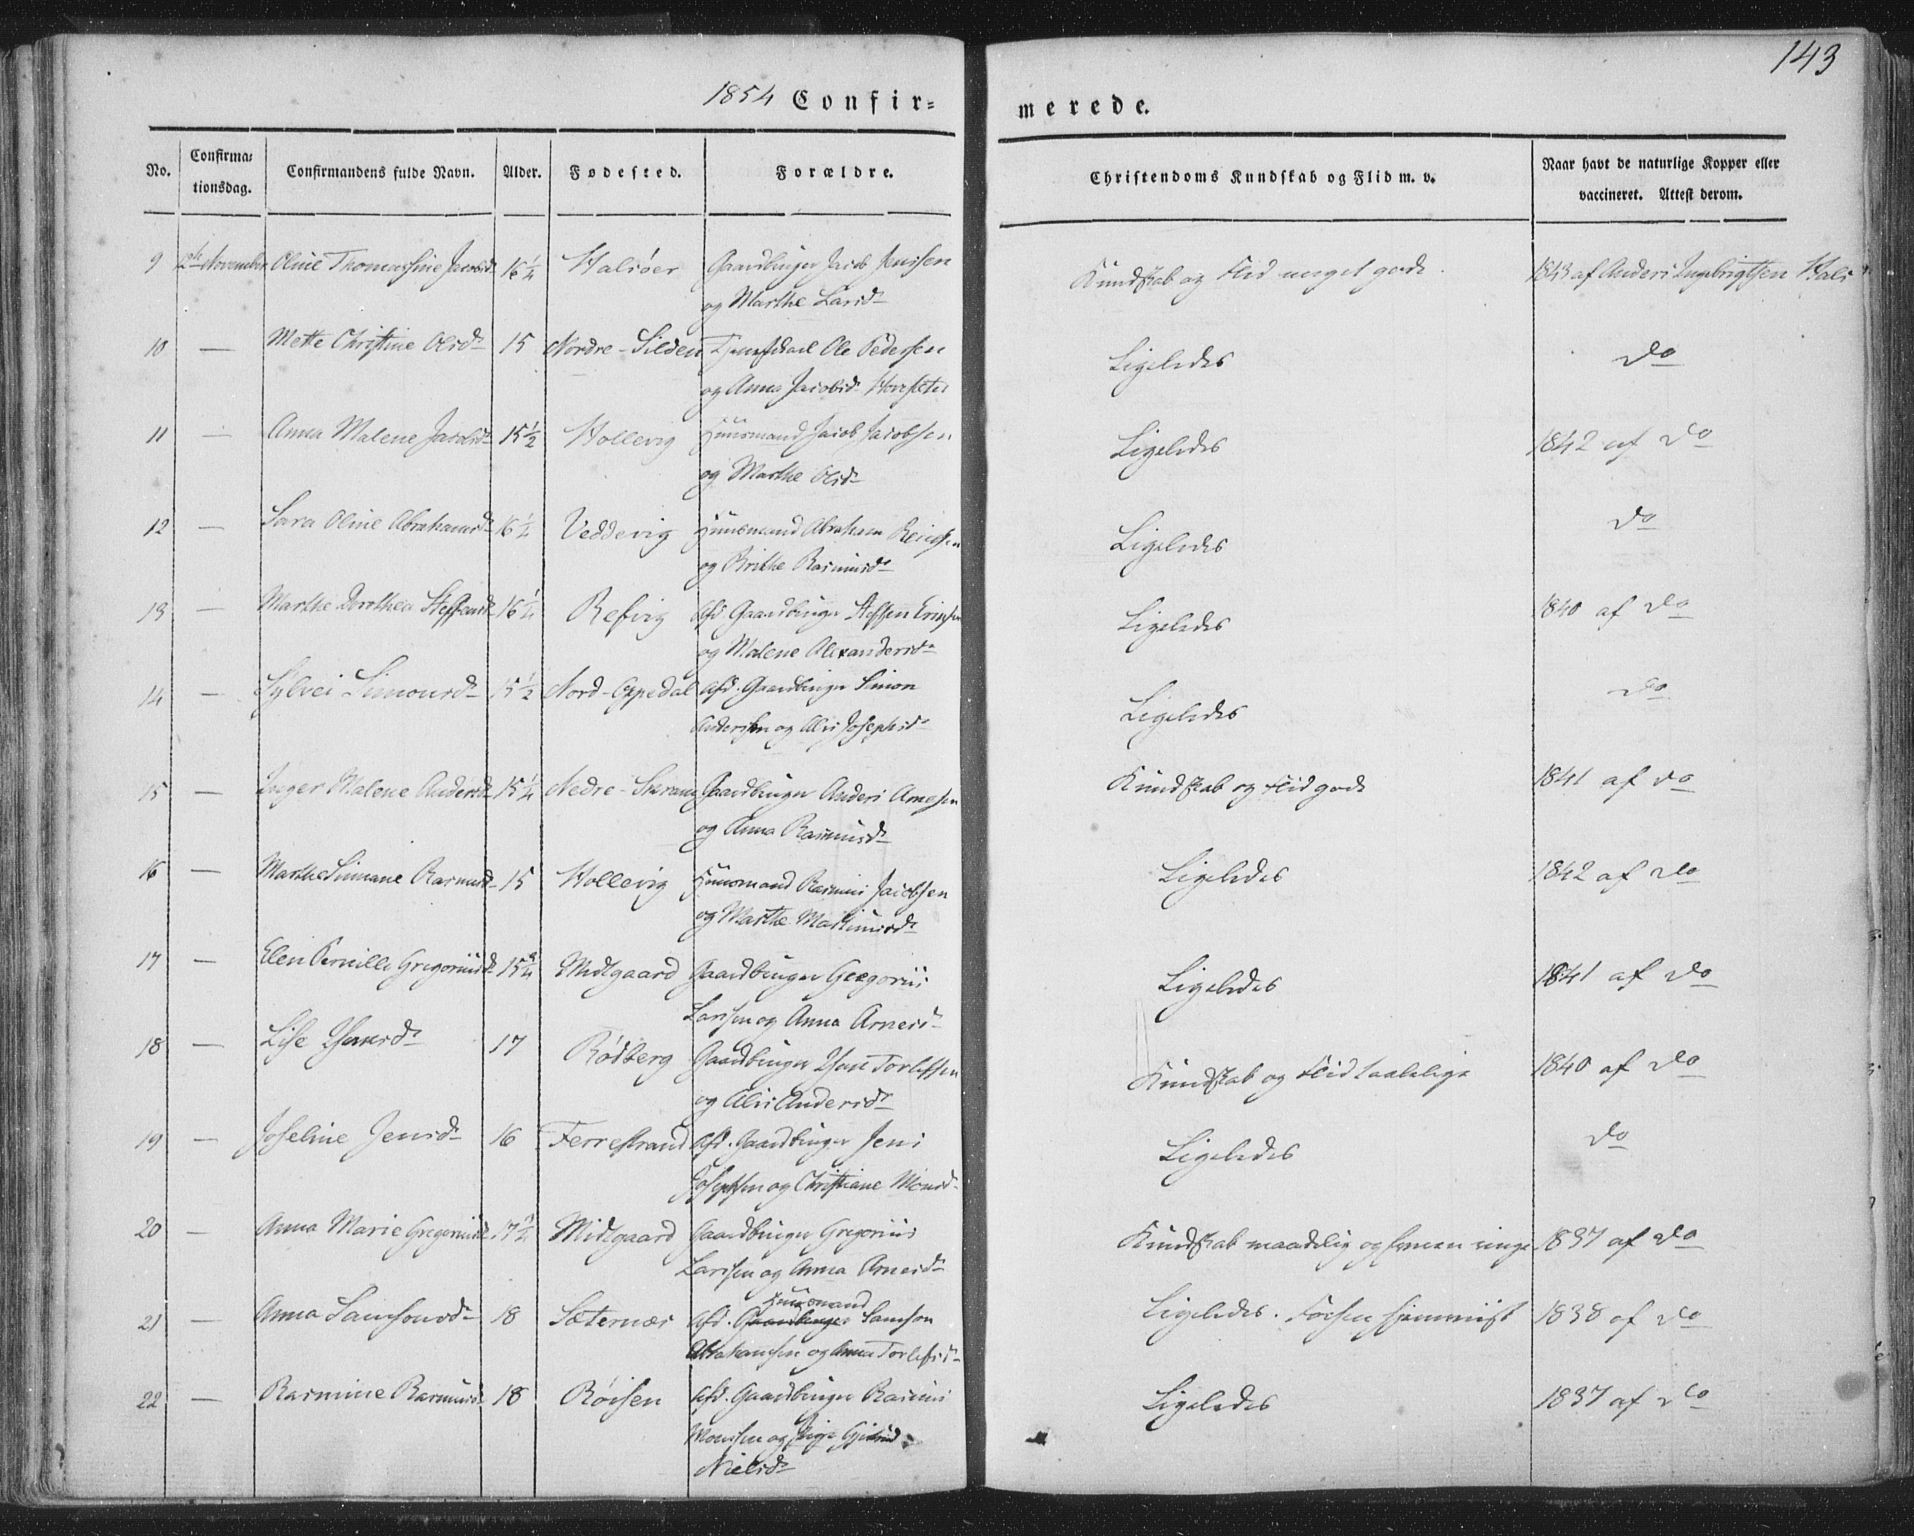 143
1854 Confir=
merede.
No.
Confirma=
tionsdag.
Confirmandens fulde Navn.
Alder.
Fødested.
Forældre.
Christendoms Kundskab og Flid m. v.
Naar havt de naturlige Kopper eller
vaccineret. Attest derom.
9 November Oline Thomassine Jacobsd 16 1/4 Halsøer Gaardbruger Jacob Jensen Kundskab og Flid meget gode. 1843 af Anders Ingebrigtsen Hals
og Marthe Larsd
10 — Mette Christine Olsd 15 Nordre-Silden Ole Pedersen Ligeledes do
og Anna Jacobsd
11 — Anna Malene Jacobsd 15 1/2 Hollevig Huusmand Jacob Jacobsen Ligeledes 1842 af do
og Marthe Olsd
12 — Sara Oline Abrahamsd 16 1/2 Veddevig Huusmand Abraham Ligeledes do
og Brithe Rasmusd
13 — Marthe Dorothea Steffensd 16 1/4 Refvig afd. Gaardbruger Steffen Ligeledes 1840 af do
og Malene Alexandersd
14 — Sylvei Simonsd 15 1/2 Nord-Oppedal afd. Gaardbruger Simon Ligeledes do
Andersen og Alis Josephsd
15 — Inger Malene Andersd 15 1/4 Nedre- Gaardbruger Anders Arnesen Kundskab og Flid gode 1841 af do
og Anna Rasmusd
16 — Marthe Rasmusd 15 Hollevig Huusmand Rasmus Jacobsen Ligeledes 1842 af do
og Marthe Mathiusd
17 — Elen Pernille Gregoriusd 15 3/4 Midtgaard Gaardbruger Gregorius Ligeledes 1841 af do
Larsen og Anna Arnesd
18 — Lise 17 Rødberg Gaardbruger Torlefsen Kundskab og Flid taalelige 1840 af do
og Alis Andersd
19 — Joseline Jensd 16 Ferrestrand afd. Gaardbruger Jens Ligeledes do
Josephsen og Christiane Monsd
20 — Anna Marie Gregoriusd 17 1/2 Midtgaard Gaardbruger Gregorius Kundskab maadelig og ringe 1837 af do
Larsen og Anna Arnesd
Huusmand
21 — Anna Samsonsd 18 Sæternæs afd. Gaardbruger Samson Ligeledes. 1838 af do
Abrahamsen og Anna Torlefsd
22 — Rasmine Rasmusd 18 Røisen afd. Gaardbruger Rasmus Ligeledes 1837 af do
Monsen og
Nielsd